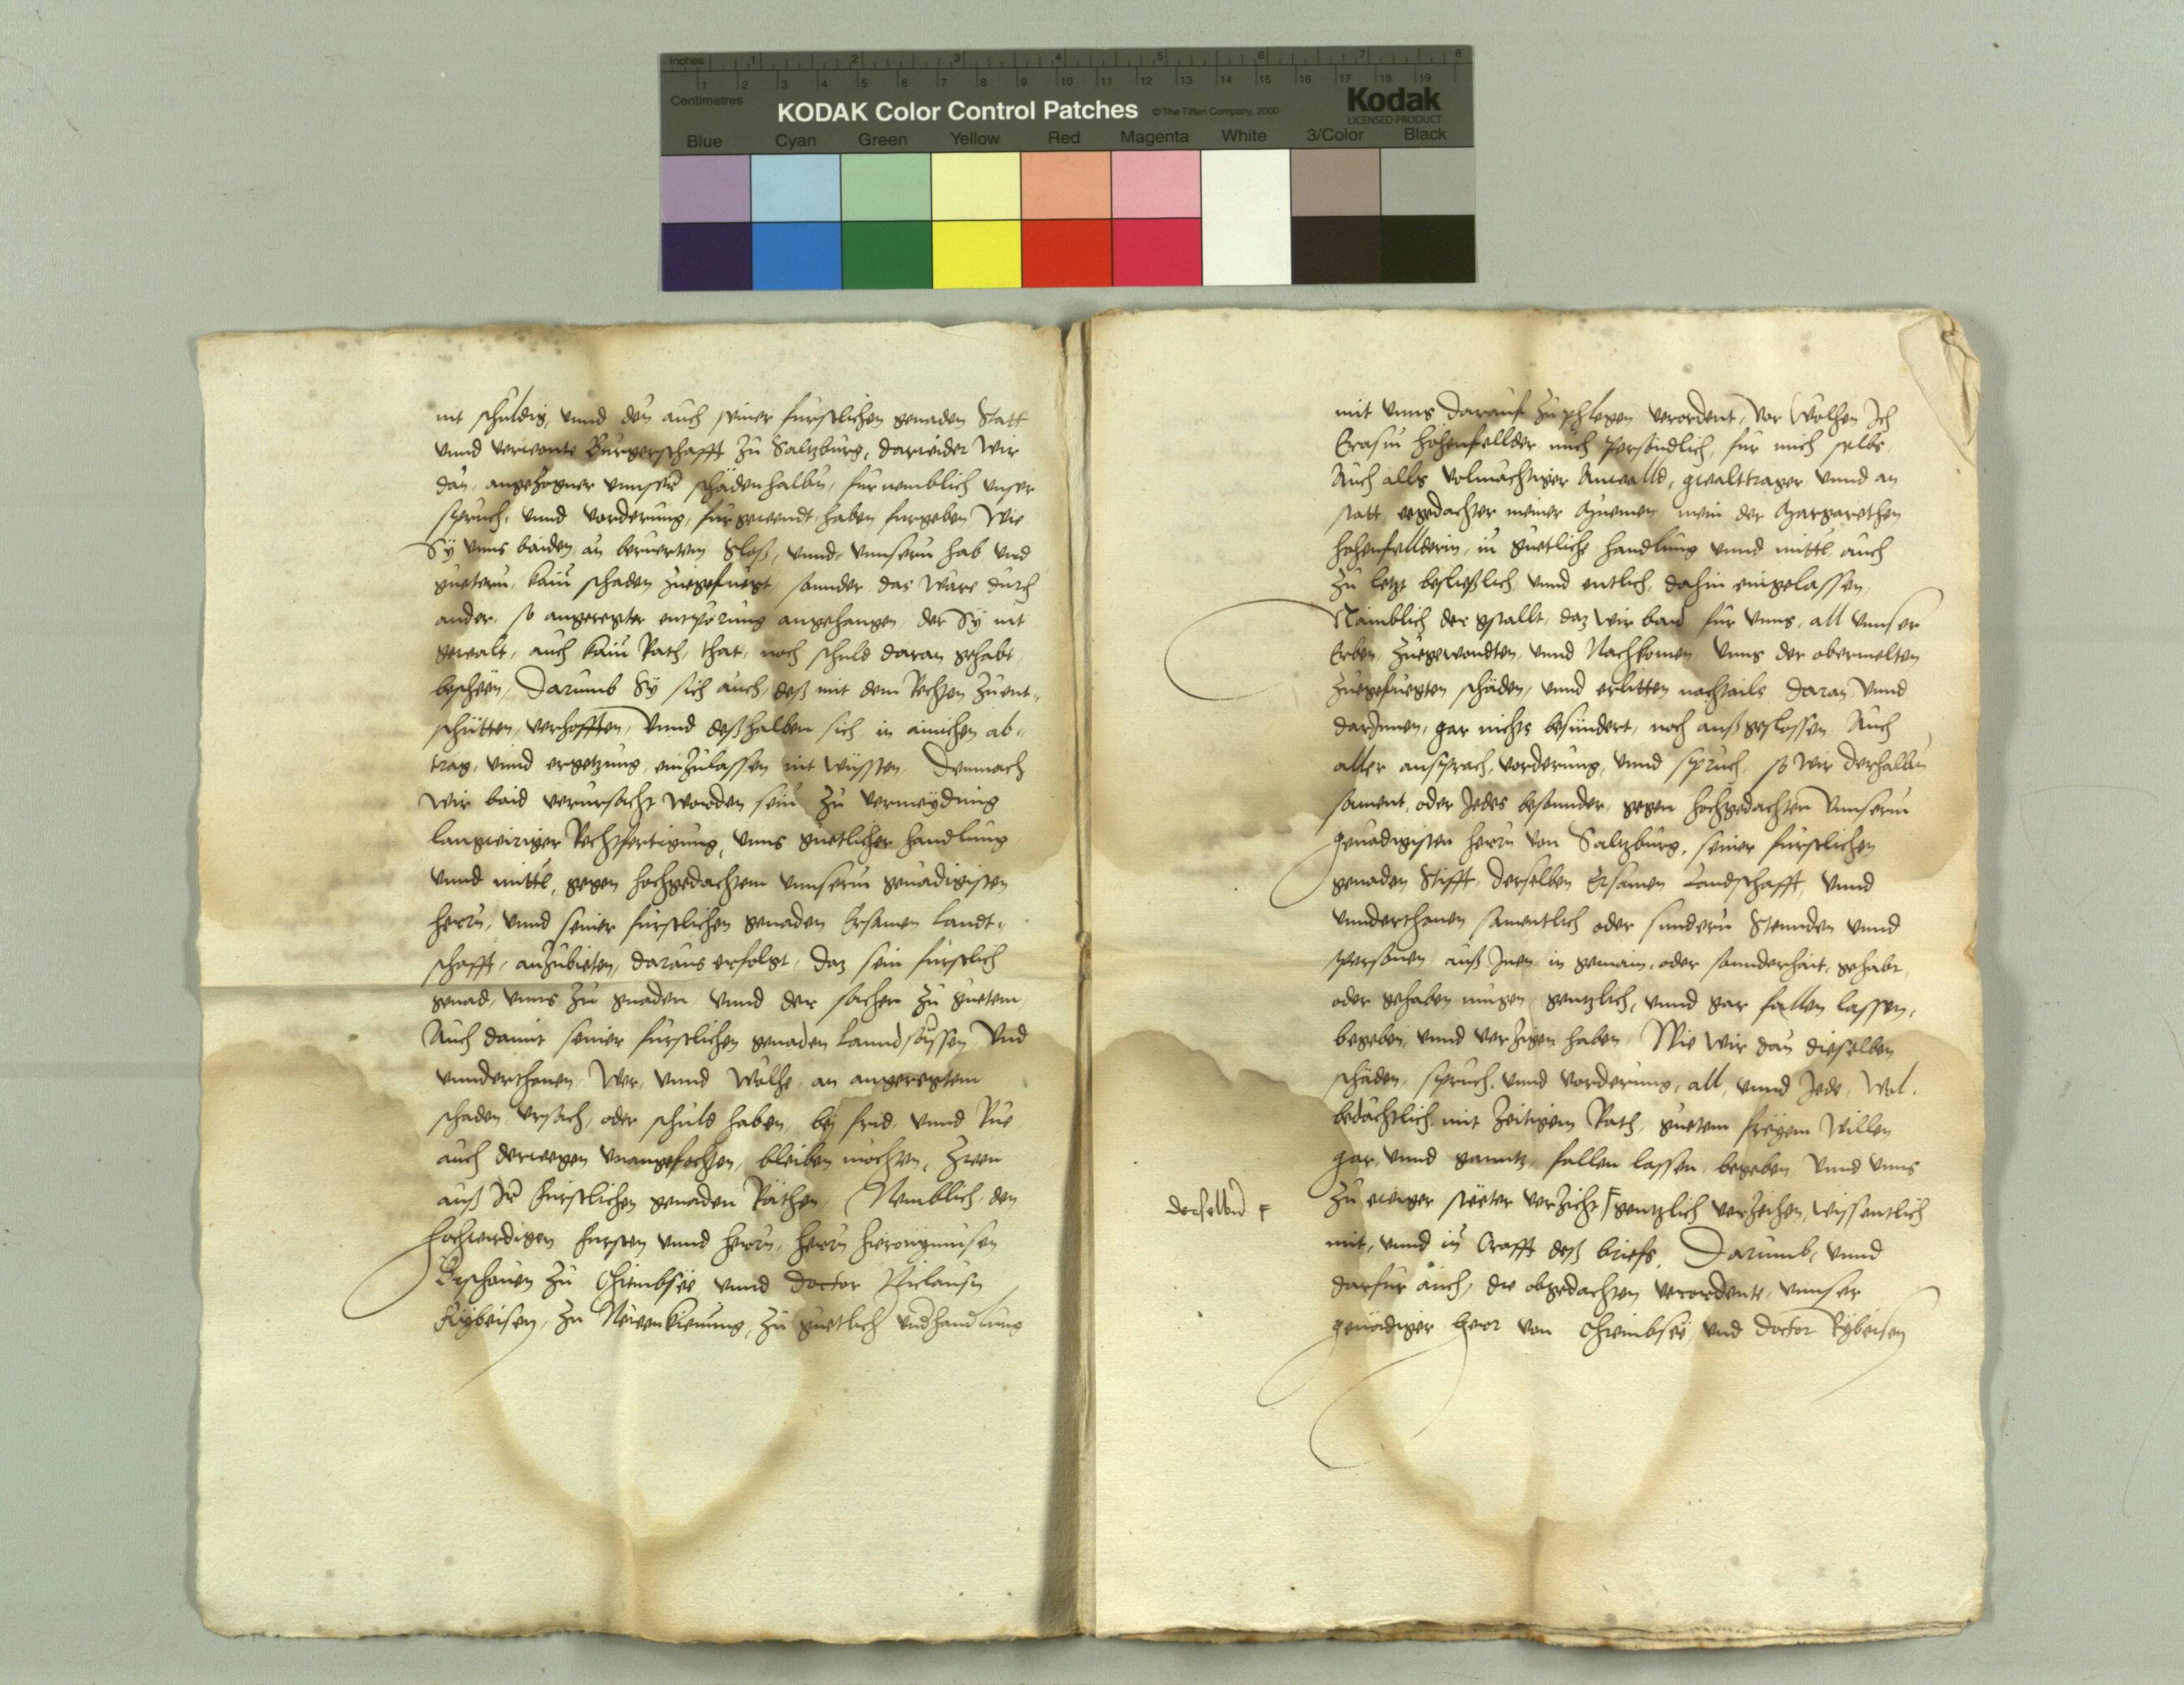 Inches 1 2 3 4 5 6 7 8
1 2 3 4 5 6 7 8 9 10 11 12 13 14 15 16 17 18 19
Centimetres
KODAK Color Control Patches © The Tiffen Company, 2000 Kodak
LICENSED PRODUCT
Blue Cyan Green Yellow Red Magenta White 3/Color Black
nit schuldig, unnd den auch seiner fürstlichen genaden Statt
unnd verwonte Burgerschafft zu Saltzburg, darwider Wir
dan, angezogner unnser schädenhalben, fürnemblich unser
spruch, unnd vorderung, fürgewendt haben furgeben Wie
Sÿ unns baiden, an beruertem Sloß, unnd unnserm hab und
guetern, kain schaden zuegefuegt, sonnder das Ware durch
ander, so angeregter entpörung angehangen, der Sÿ nit
gewalt, auch kain Rath, that, noch schuld daran gehabt,
beschëen, Darumb Sÿ sich auch, deß mit dem Rechten zu ent-
schütten, verhofften, Unnd deßhalben sich in ainichen ab-
trag, unnd ergetzung, einzulassen nit wüssten, Demnach
Wir baid verursacht worden sein zu vermeÿdung
langwiriger Rechtfertigung, unns guetlicher handlung
unnd mittl, gegen hochgedachtem unnserm genädigisten
herrn, unnd seiner fürstlichen genaden Ersamen Landt-
schafft, anzubieten, daraus erfolgt, daz sein fürstlich
genad, unns zu gnaden unnd der sachen zu guetem,
Auch damit seiner fürstlichen genaden Lanndsässen und
unnderthanen Wer, unnd Wölhe, an angeregtem
schaden ursach, oder schuld haben, beÿ frid, unnd Rue
auch derwegen unangefochten, bleiben möchten, Zwen
auß Irer fürstlichen genaden Räthen, Nemblich, den
hochwirdigen fürsten unnd herrn, herrn hieronÿmusen
Bischouen zu Chiembseë unnd doctor Niclausn
Rÿbeisen, zu Neuenkieming, zu guetlich undhandlung
mit unns darauf zu phlegen verordent, Vor Wölhen Ich
Erasm hohenfellder mich persöndlich, für mich selbs,
Auch alls volmächtiger Anwalld, gwalttrager unnd an
statt, eegedachter meiner Muemen mein der Margarethen
hohenfellderin, in guetliche handlung unnd mittl, auch
zu letzt besließlich, unnd entlich, dahin eingelassen,
Nämblich der gstallt, daz Wir baid für unns, all unnser
Erben, Zuegewondten, unnd Nachkomen, unns der obermelten
zuegefuegten schäden, unnd erlitten nachtails daran, unnd
darInnen, gar nichts besündert, noch außgeslossen Auch
aller ansprach, vorderung, unnd spruch, so Wir derhalben
sament, oder Jedes besonnder, gegen hochgedachten unnserm
genädigisten herrn von Saltzburg, seiner fürstlichen
genaden Stifft, derselben Ersamen Landschafft, unnd
unnderthanen samentlich oder sundern Stennden unnd
personen, auß Inen in gemain, oder sonnderhait, gehabt,
oder gehaben mügen, gentzlich, unnd gar fallen lassen,
begeben, unnd verzigen haben, Wie Wir dan dieselben
schäden, spruch, unnd vorderung, all, unnd Jede, Wol-
bedächtlich mit zeitigem Rath, guetem freÿem Willen
gar, unnd ganntz, fallen lassen, begeben unnd unns
derselben zu ewiger stëeter verzicht gentzlich verzeihen, wissentlich
mit, unnd in Crafft deß briefs, Darumb, unnd
darfür auch, die obgedachten verordente, unnser
genädiger herr von Chiembseë und doctor Rÿbeisen